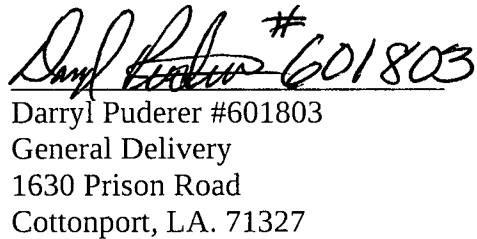 Darryl Puderer #601803
Darryl Puderer #601803
General Delivery
1630 Prison Road
Cottonport, LA. 71327